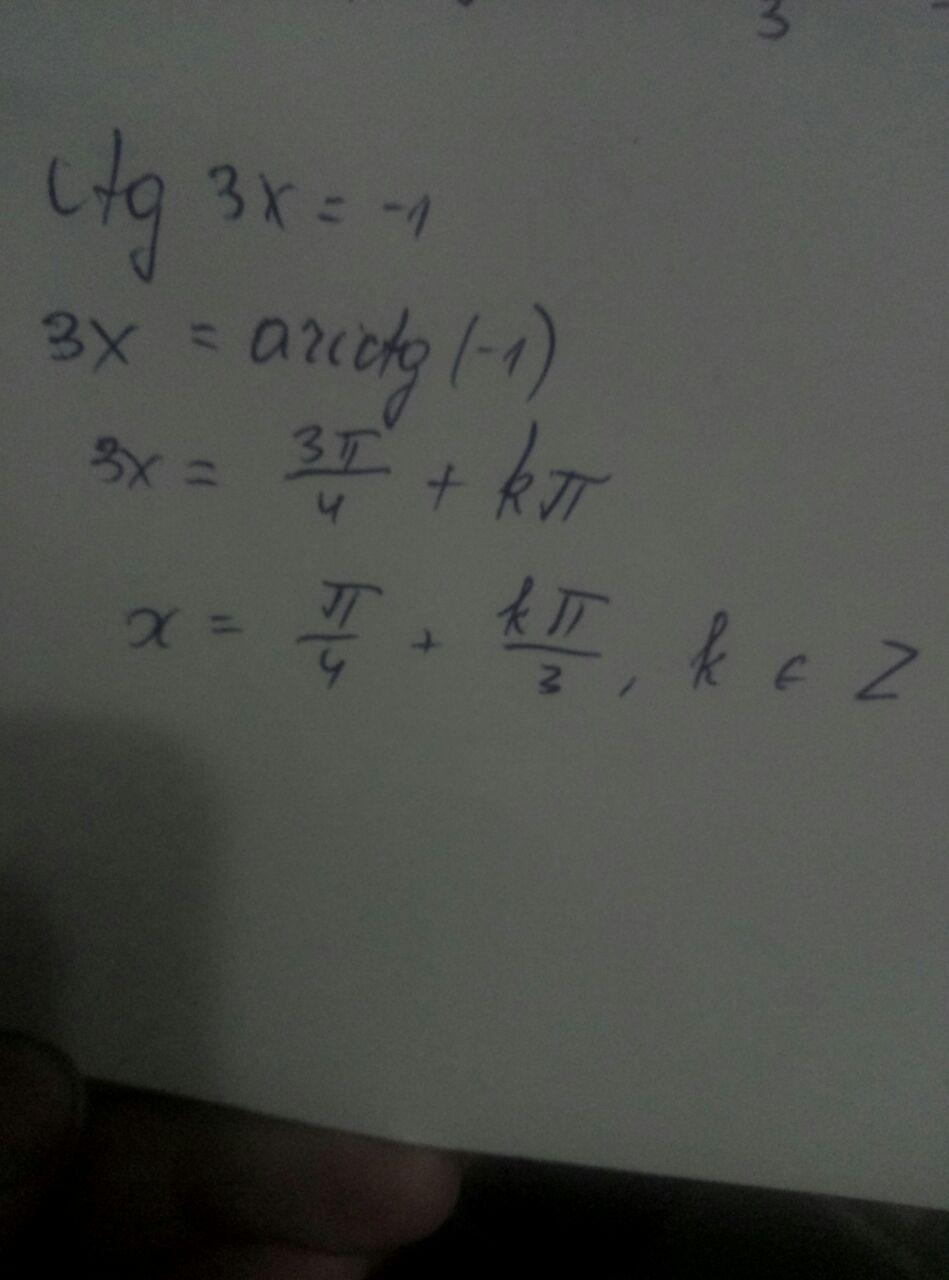 3
ctg 3x = -1
3x = arcctg (-1)
3x = 3π/4 + kπ
x = π/4 + kπ/3, k ∈ Z